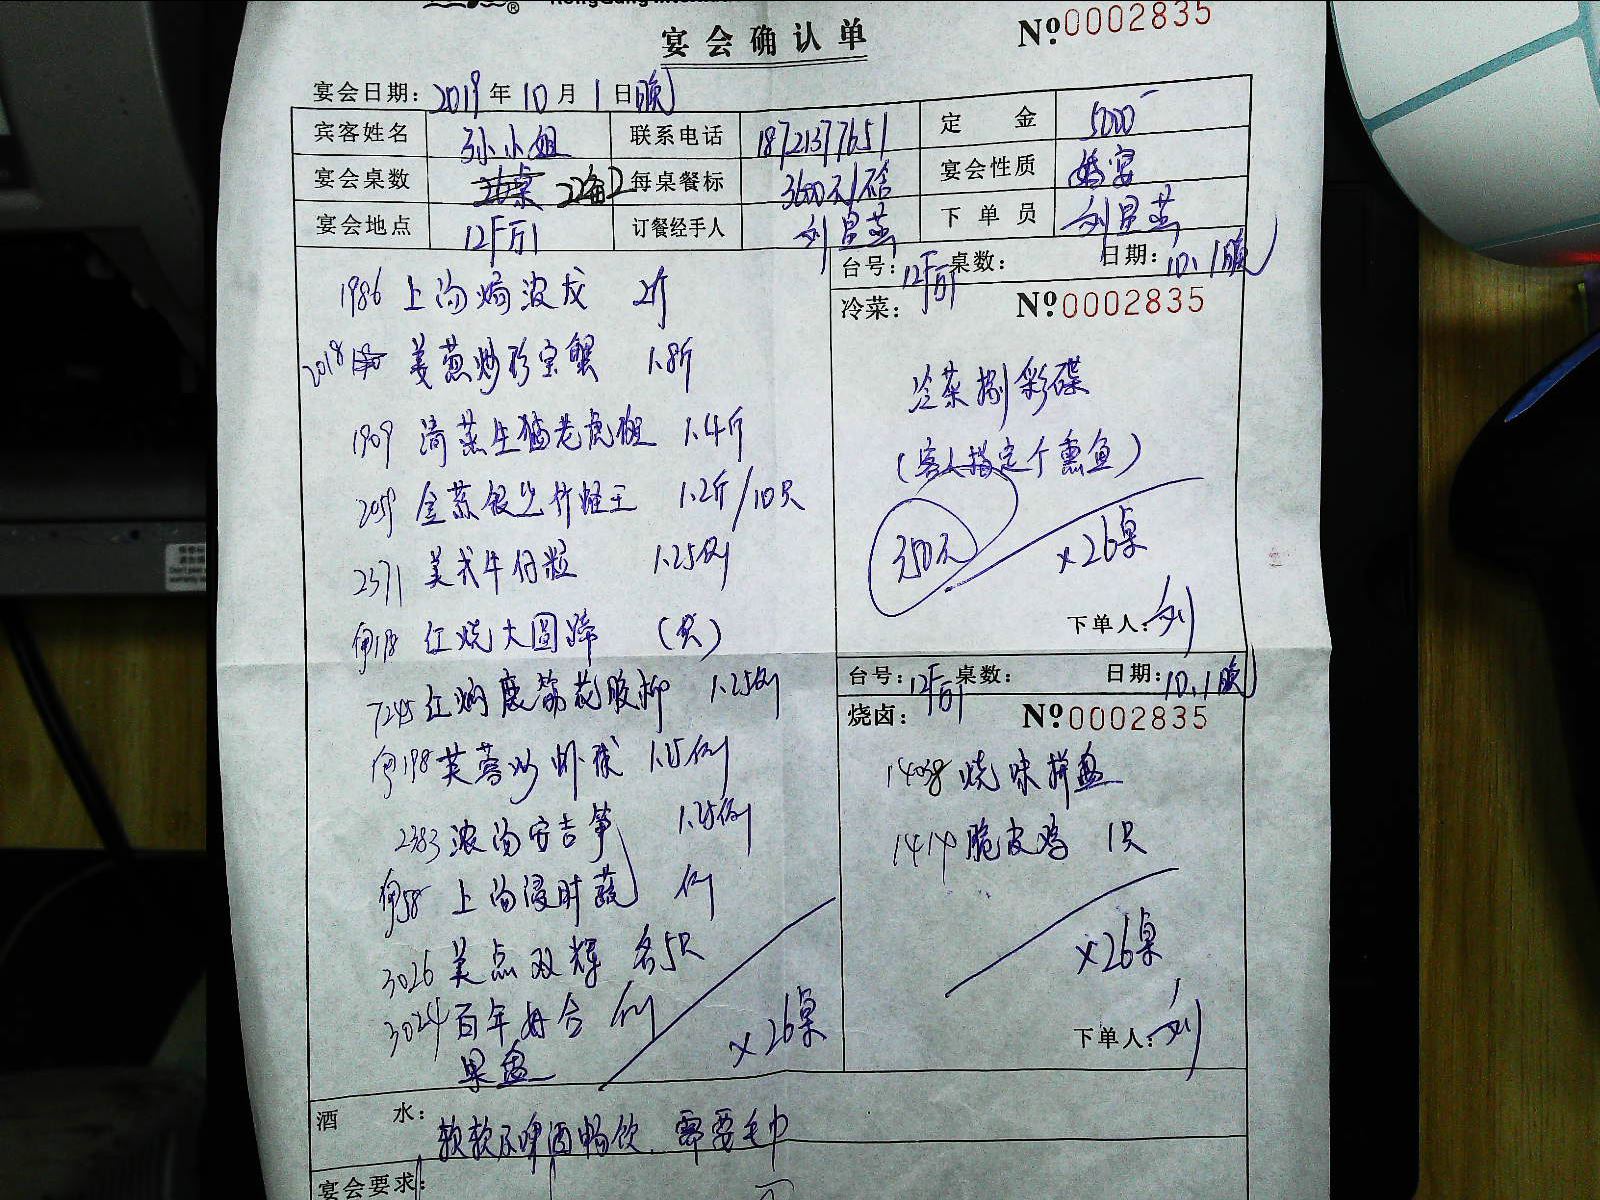 宴会确认单
№0002835
宴会日期: 2019年10月1日(晚)
宾客姓名 孙小姐 联系电话 18721377651 定金 5000
宴会桌数 26桌 22备2 每桌餐标 3600元/桌 宴会性质 婚宴
宴会地点 12F前 订餐经手人 下单员
1986 上汤焗波龙 2斤
2018 姜葱炒珍宝蟹 1.8斤
1909 清蒸生猛老虎斑 1.4斤
2059 金蒜银丝竹蛏王 1.2斤/10只
2371 美式牛仔粒 1.25例
198 红烧大圆蹄 (只)
7245 红焖 花胶柳 1.25例
198 芙蓉炒虾球 1.25例
2383 浓汤安吉笋 1.25例
58 上汤浸时蔬 例
3026 美点双辉 各5只
3024 百年好合 例
果盘
×26桌
台号: 12F前 桌数: 日期: 10.1晚
冷菜: №0002835
冷菜 彩碟
(客人指定个熏鱼)
350元
×26桌
下单人: 刘
台号: 12F前 桌数: 日期: 10.1晚
烧卤: №0002835
1408 烧味拼盘
1414 脆皮鸡 1只
×26桌
下单人: 刘
酒水: 软饮及啤酒畅饮. 需要毛巾
宴会要求: